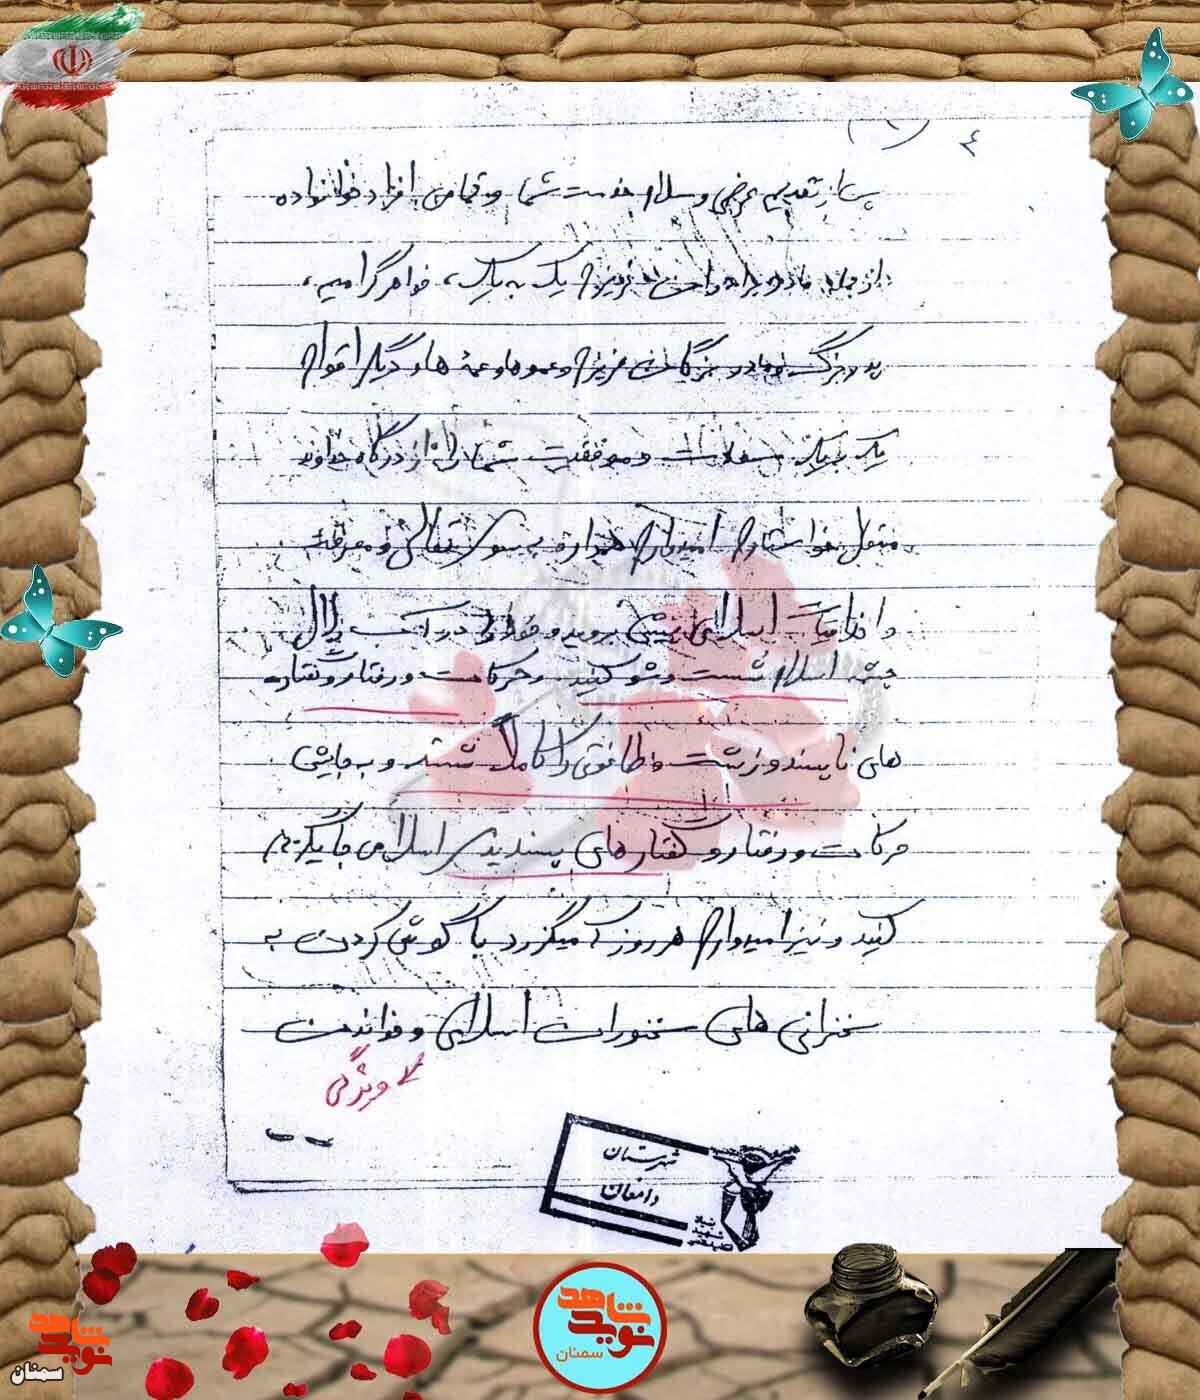 ۴
پس از تقدیم عرض و سلام خدمت شما و تمامی افراد خانواده
از جمله مادر و برادران عزیزم یک به یک، خواهر گرامیم،
پدربزرگ و مادر بزرگان عزیزم و عموها و عمه ها و دیگر اقوام
یک به یک سعادت و موفقیت شما را از درگاه خداوند
متعال خواستارم امیدوارم همواره بسوی تعالی و معرفت
و اخلاقیات اسلامی پیش بروید و خود را در آب زلال
چشمه اسلام شست و شو کنید و حرکات و رفتار و گفتاره
های ناپسند و زشت و طاغوتی را کاملاً شسته و به جایش
حرکات و رفتار و گفتار های پسندیدی اسلامی جایگزین
کنید و نیز امیدوارم هر روز که میگزرد با گوش کردن به
سخنرانی های سخنوران اسلامی و خواندن
ویژگی
شهرستان
دامغان
بنیاد
شهید
شاهد
نوید
سمنان
شاهد
نوید
سمنان